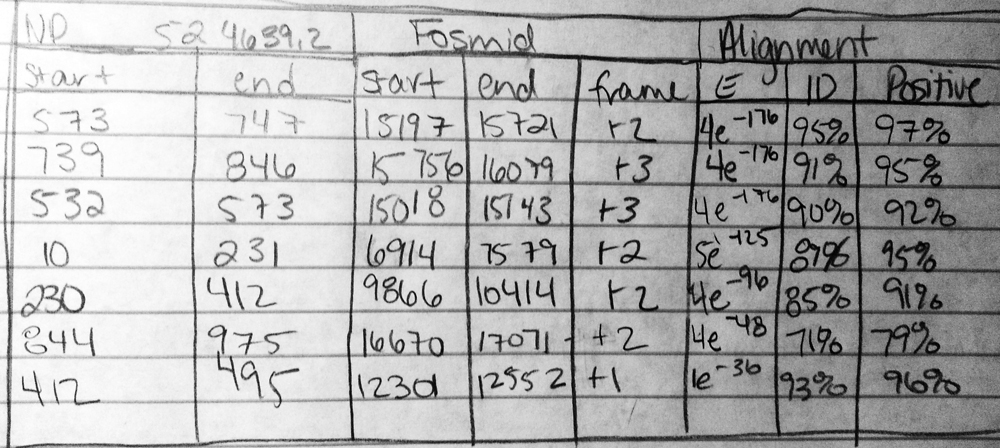 NP 524639.2 Fosmid Alignment
start end start end frame E ID Positive
573 747 15197 15721 +2 4e-176 95% 97%
739 846 15756 16079 +3 4e-176 91% 95%
532 573 15018 15143 +3 4e-176 90% 92%
10 231 6914 7579 +2 5e-125 87% 95%
230 412 9866 10414 +2 4e-96 85% 91%
844 975 16670 17071 +2 4e-48 71% 79%
412 495 12301 12552 +1 1e-36 93% 96%